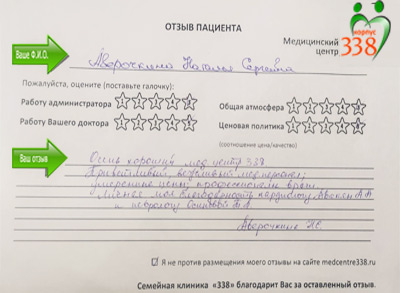 ОТЗЫВ ПАЦИЕНТА
корпус
Медицинский центр 338
Ваше Ф.И.О.
Аверочкина Наталья Сергеевна
Пожалуйста, оцените (поставьте галочку):
Работу администратора
Общая атмосфера
Работу Вашего доктора
Ценовая политика
(соотношение цена/качество)
Ваш отзыв
Очень хороший мед. центр 338
Приветливый, вежливый медперсонал;
умеренные цены; профессионалы врачи.
Личная моя благодарность кардиологу А.А.
и неврологу
Аверочкина Н.С.
Я не против размещения моего отзыва на сайте medcentre338.ru
Семейная клиника «338» благодарит Вас за оставленный отзыв.